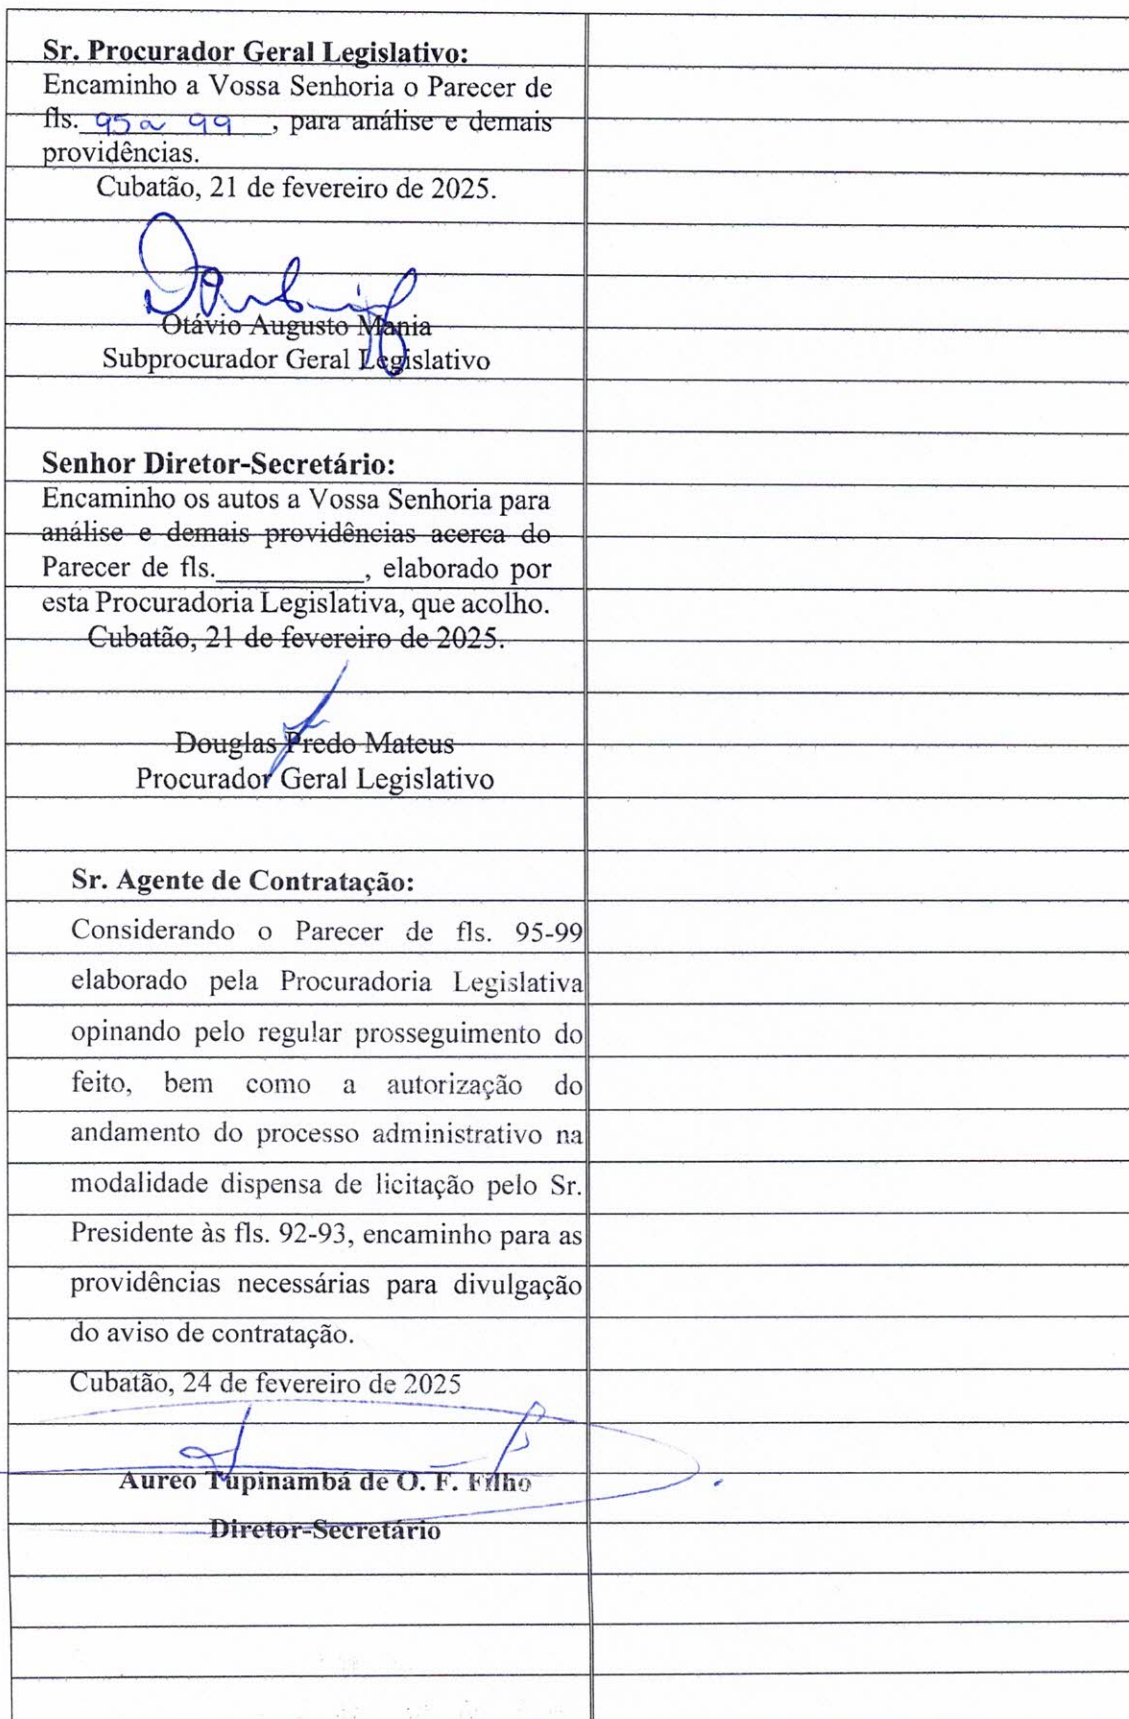 Sr. Procurador Geral Legislativo:
Encaminho a Vossa Senhoria o Parecer de
fls. 95 a 99, para análise e demais
providências.
Cubatão, 21 de fevereiro de 2025.
Otávio Augusto Mania
Subprocurador Geral Legislativo
Senhor Diretor-Secretário:
Encaminho os autos a Vossa Senhoria para
análise e demais providências acerca do
Parecer de fls.__________, elaborado por
esta Procuradoria Legislativa, que acolho.
Cubatão, 21 de fevereiro de 2025.
Douglas Predo Mateus
Procurador Geral Legislativo
Sr. Agente de Contratação:
Considerando o Parecer de fls. 95-99
elaborado pela Procuradoria Legislativa
opinando pelo regular prosseguimento do
feito, bem como a autorização do
andamento do processo administrativo na
modalidade dispensa de licitação pelo Sr.
Presidente às fls. 92-93, encaminho para as
providências necessárias para divulgação
do aviso de contratação.
Cubatão, 24 de fevereiro de 2025
Aureo Tupinambá de O. F. Filho
Diretor-Secretário